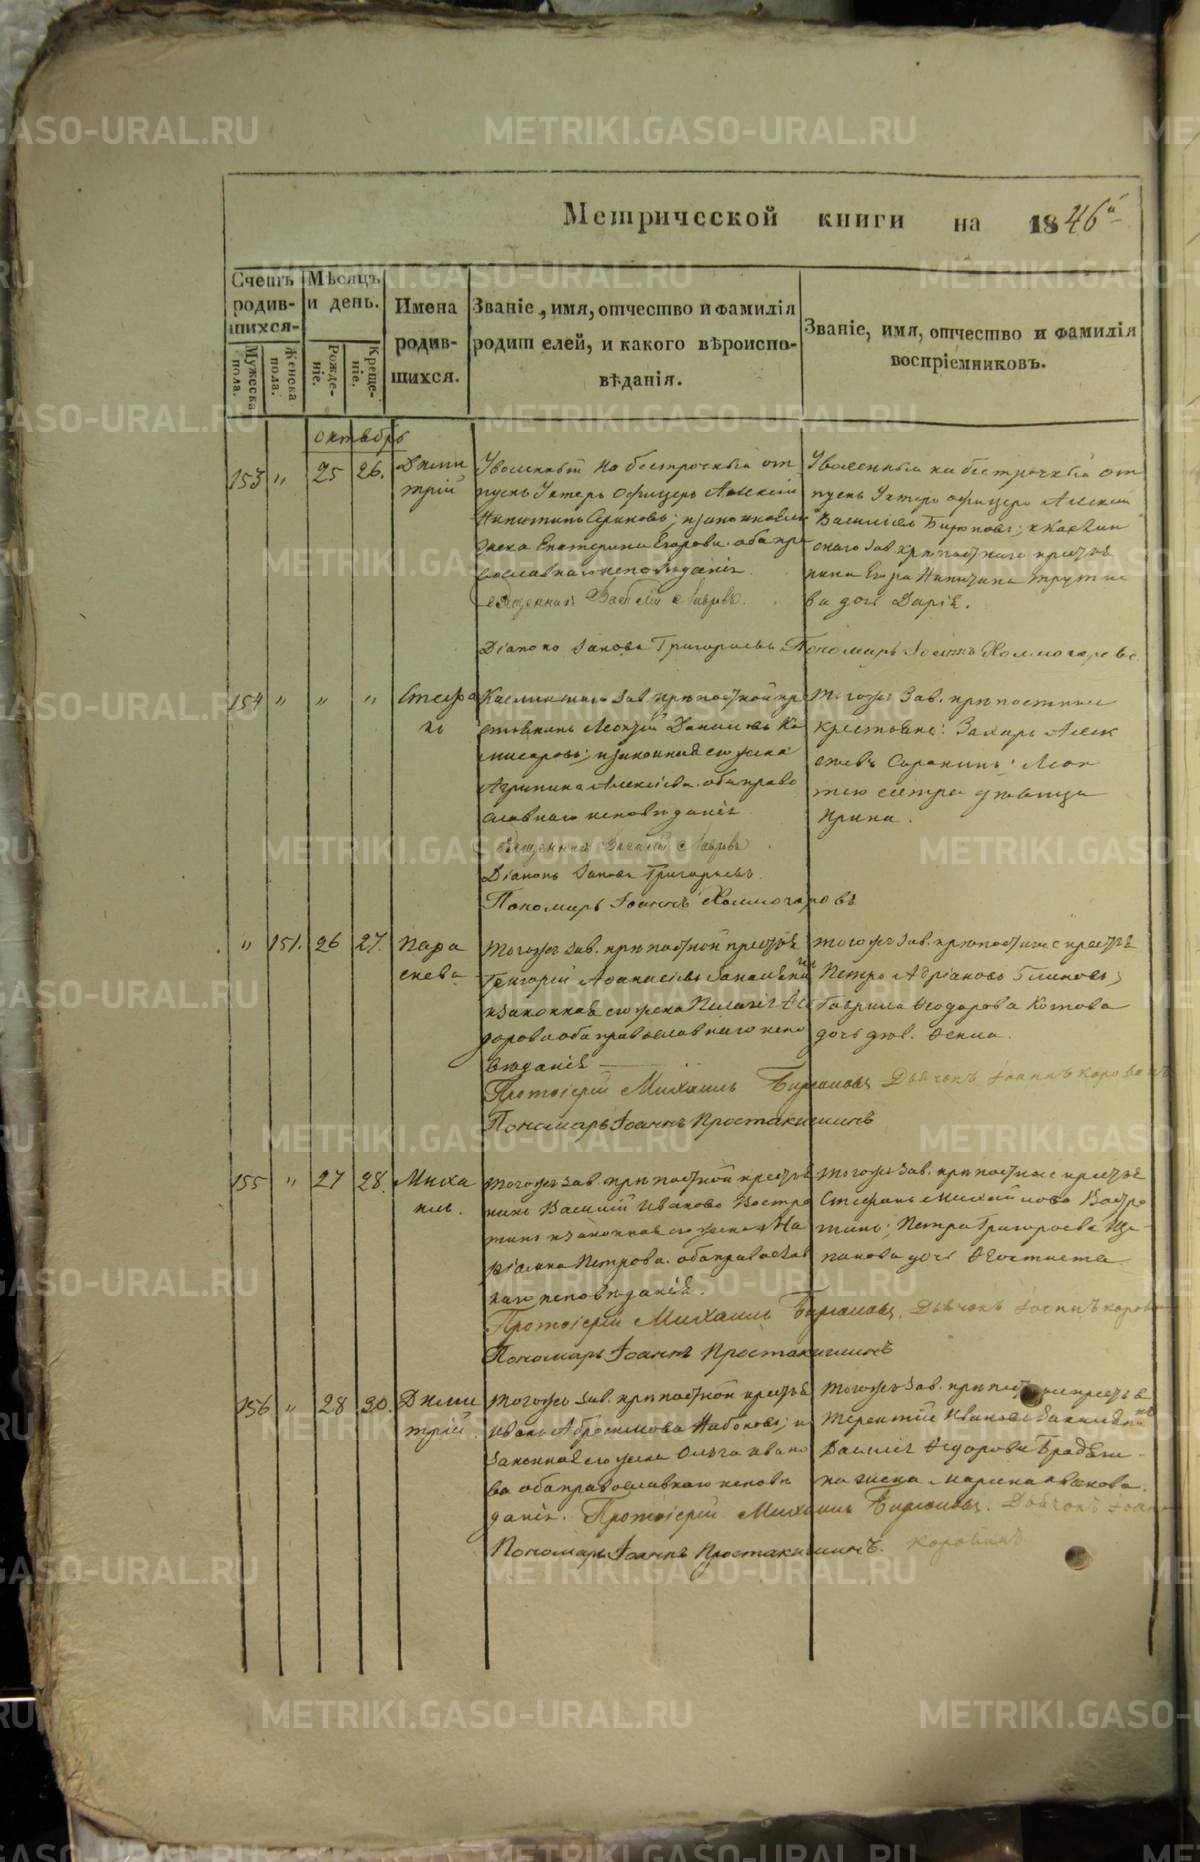 Метрической книги на 1846й
Счетъ родив-шихся.
Мужеска пола.
Женска пола.
Мѣсяцъ и день.
Рожде-ніе.
Креще-ніе.
Имена родив-шихся.
Званіе, имя, отчество и фамилія
родителей, и какого вѣроиспо-
вѣданія.
Званіе, имя, отчество и фамилія
воспріемниковъ.
октябрь
153 " 25 26. Дими
трій
Уволенный на безсрочный от
пускъ Унтеръ офицеръ Алексій
законная
жена Екатерина Егорова. оба пра
вославнаго исповѣданія.
Священникъ Василій Лавровъ.
Діаконъ Іаковъ Григорьевъ Пономарь Іоаннъ Холмогоровъ
Уволенный на безсрочный от
пускъ Унтеръ офицеръ Алексій
Василіевъ Бирюковъ; и Каслин
скаго зав. крѣпостнаго крестья
нина Егора Никитина
ва дочь Дарія.
154 " " " Стефа
нъ
Каслинскаго зав. крѣпостной кре
стьянинъ Леонтій Даниловъ Ко
мисаровъ; и законная его жена
Агрипина Алексіева. оба право
славнаго исповѣданія.
Священникъ Василій Лавровъ
Діаконъ Іаковъ Григорьевъ.
Пономарь Іоаннъ Холмогоровъ
Тогожъ зав. крѣпостные
крестьяне: Захаръ Алек
сіевъ Сорокинъ; Леон
тію сестра дѣвица
Ирина.
" 151. 26 27. Пара
скева
Тогожъ зав. крѣпостной крестья
Григорій Афанасіевъ
и законная его жена Пелагія Ѳе
дорова оба православнаго испо
вѣданія
Протоіерей Михаилъ Бирюковъ Дьячокъ Іоаннъ Коровинъ
Пономарь Іоаннъ Простакишинъ
тогожъ зав. крѣпостные крестья
Петръ Адріановъ Глиновъ;
Гаврила Ѳеодорова Котова
дочь дѣв. Ѳекла.
155 " 27 28. Миха
илъ.
Тогожъ зав. крѣпостной крестья
нинъ Василій Ивановъ Востро
тинъ и законная его жена Ма
ріамна Петрова. оба православ
наго исповѣданія.
Протоіерей Михаилъ Бирюковъ. Дьячокъ Іоаннъ Коровинъ
Пономарь Іоаннъ Простакишинъ
Тогожъ зав. крѣпостные крестья
Стефанъ Михайловъ Востро
тинъ; Петра Григорьева Ще
панова дочь Ѳеоктиста.
156 " 28 30. Дими
трій.
Тогожъ зав. крѣпостной крестья
Иванъ Абросимовъ Набоковъ; и
законная его жена Ольга Ивано
ва оба православнаго исповѣ
данія. Протоіерей Михаилъ Бирюковъ. Дьячокъ Іоаннъ
Пономарь Іоаннъ Простакишинъ. Коровинъ
Тогожъ зав. крѣпостные крестья
Терентій Ивановъ
Василія Ѳедорова
на жена Марина
METRIKI.GASO-URAL.RU